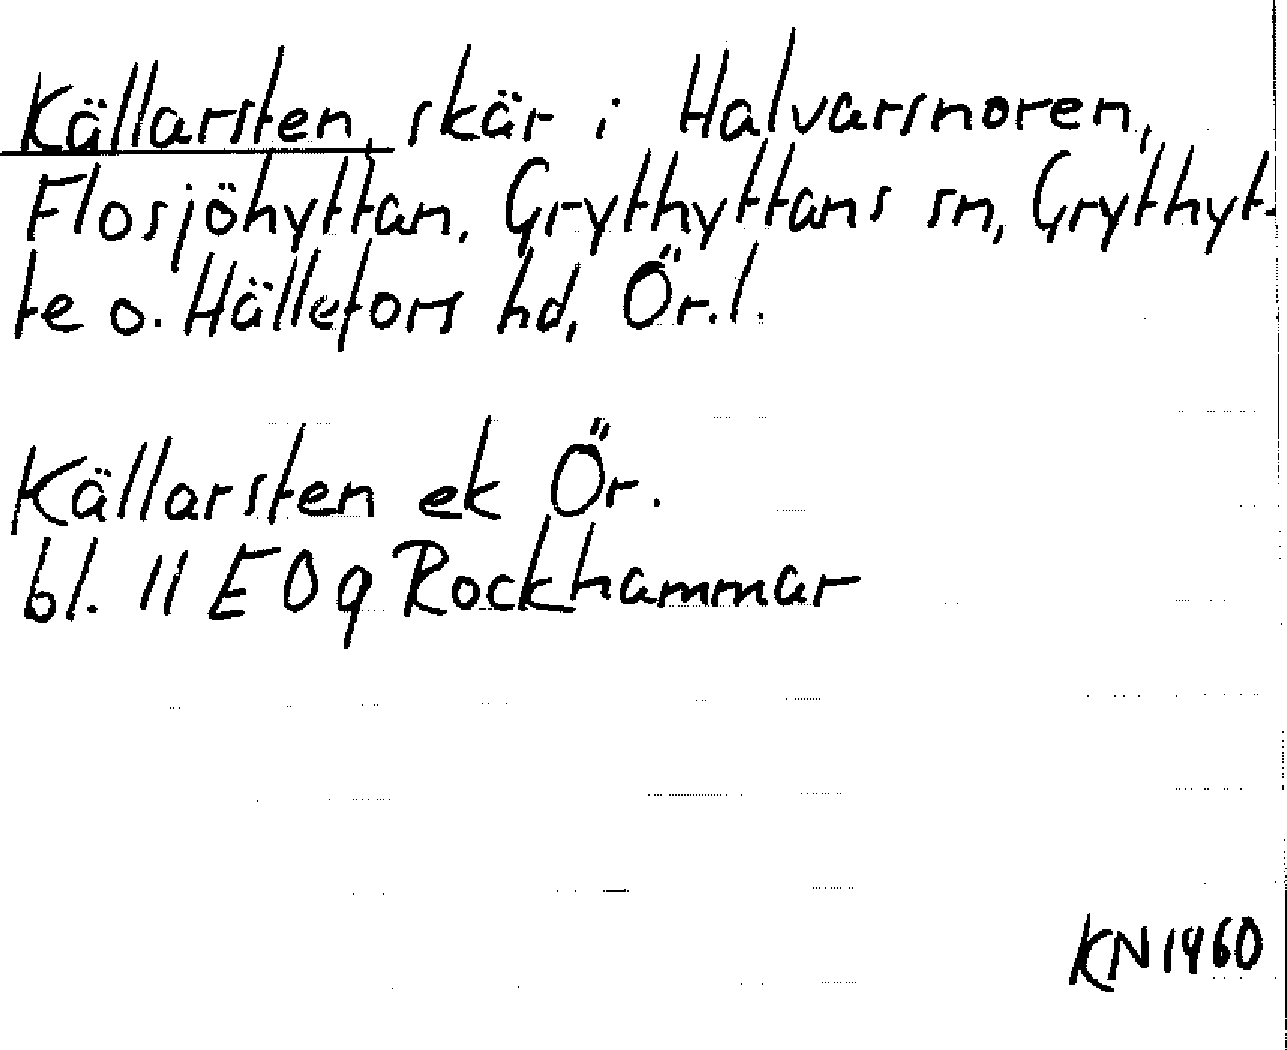 Källarsten, skär i Halvarsnoren,
Flosjöhyttan, Grythyttans sn, Grythyt-
te o. Hällefors hd, Ör.l.
Källarsten ek Ör.
bl. 11 E 0 q Rockhammar
KN 1960